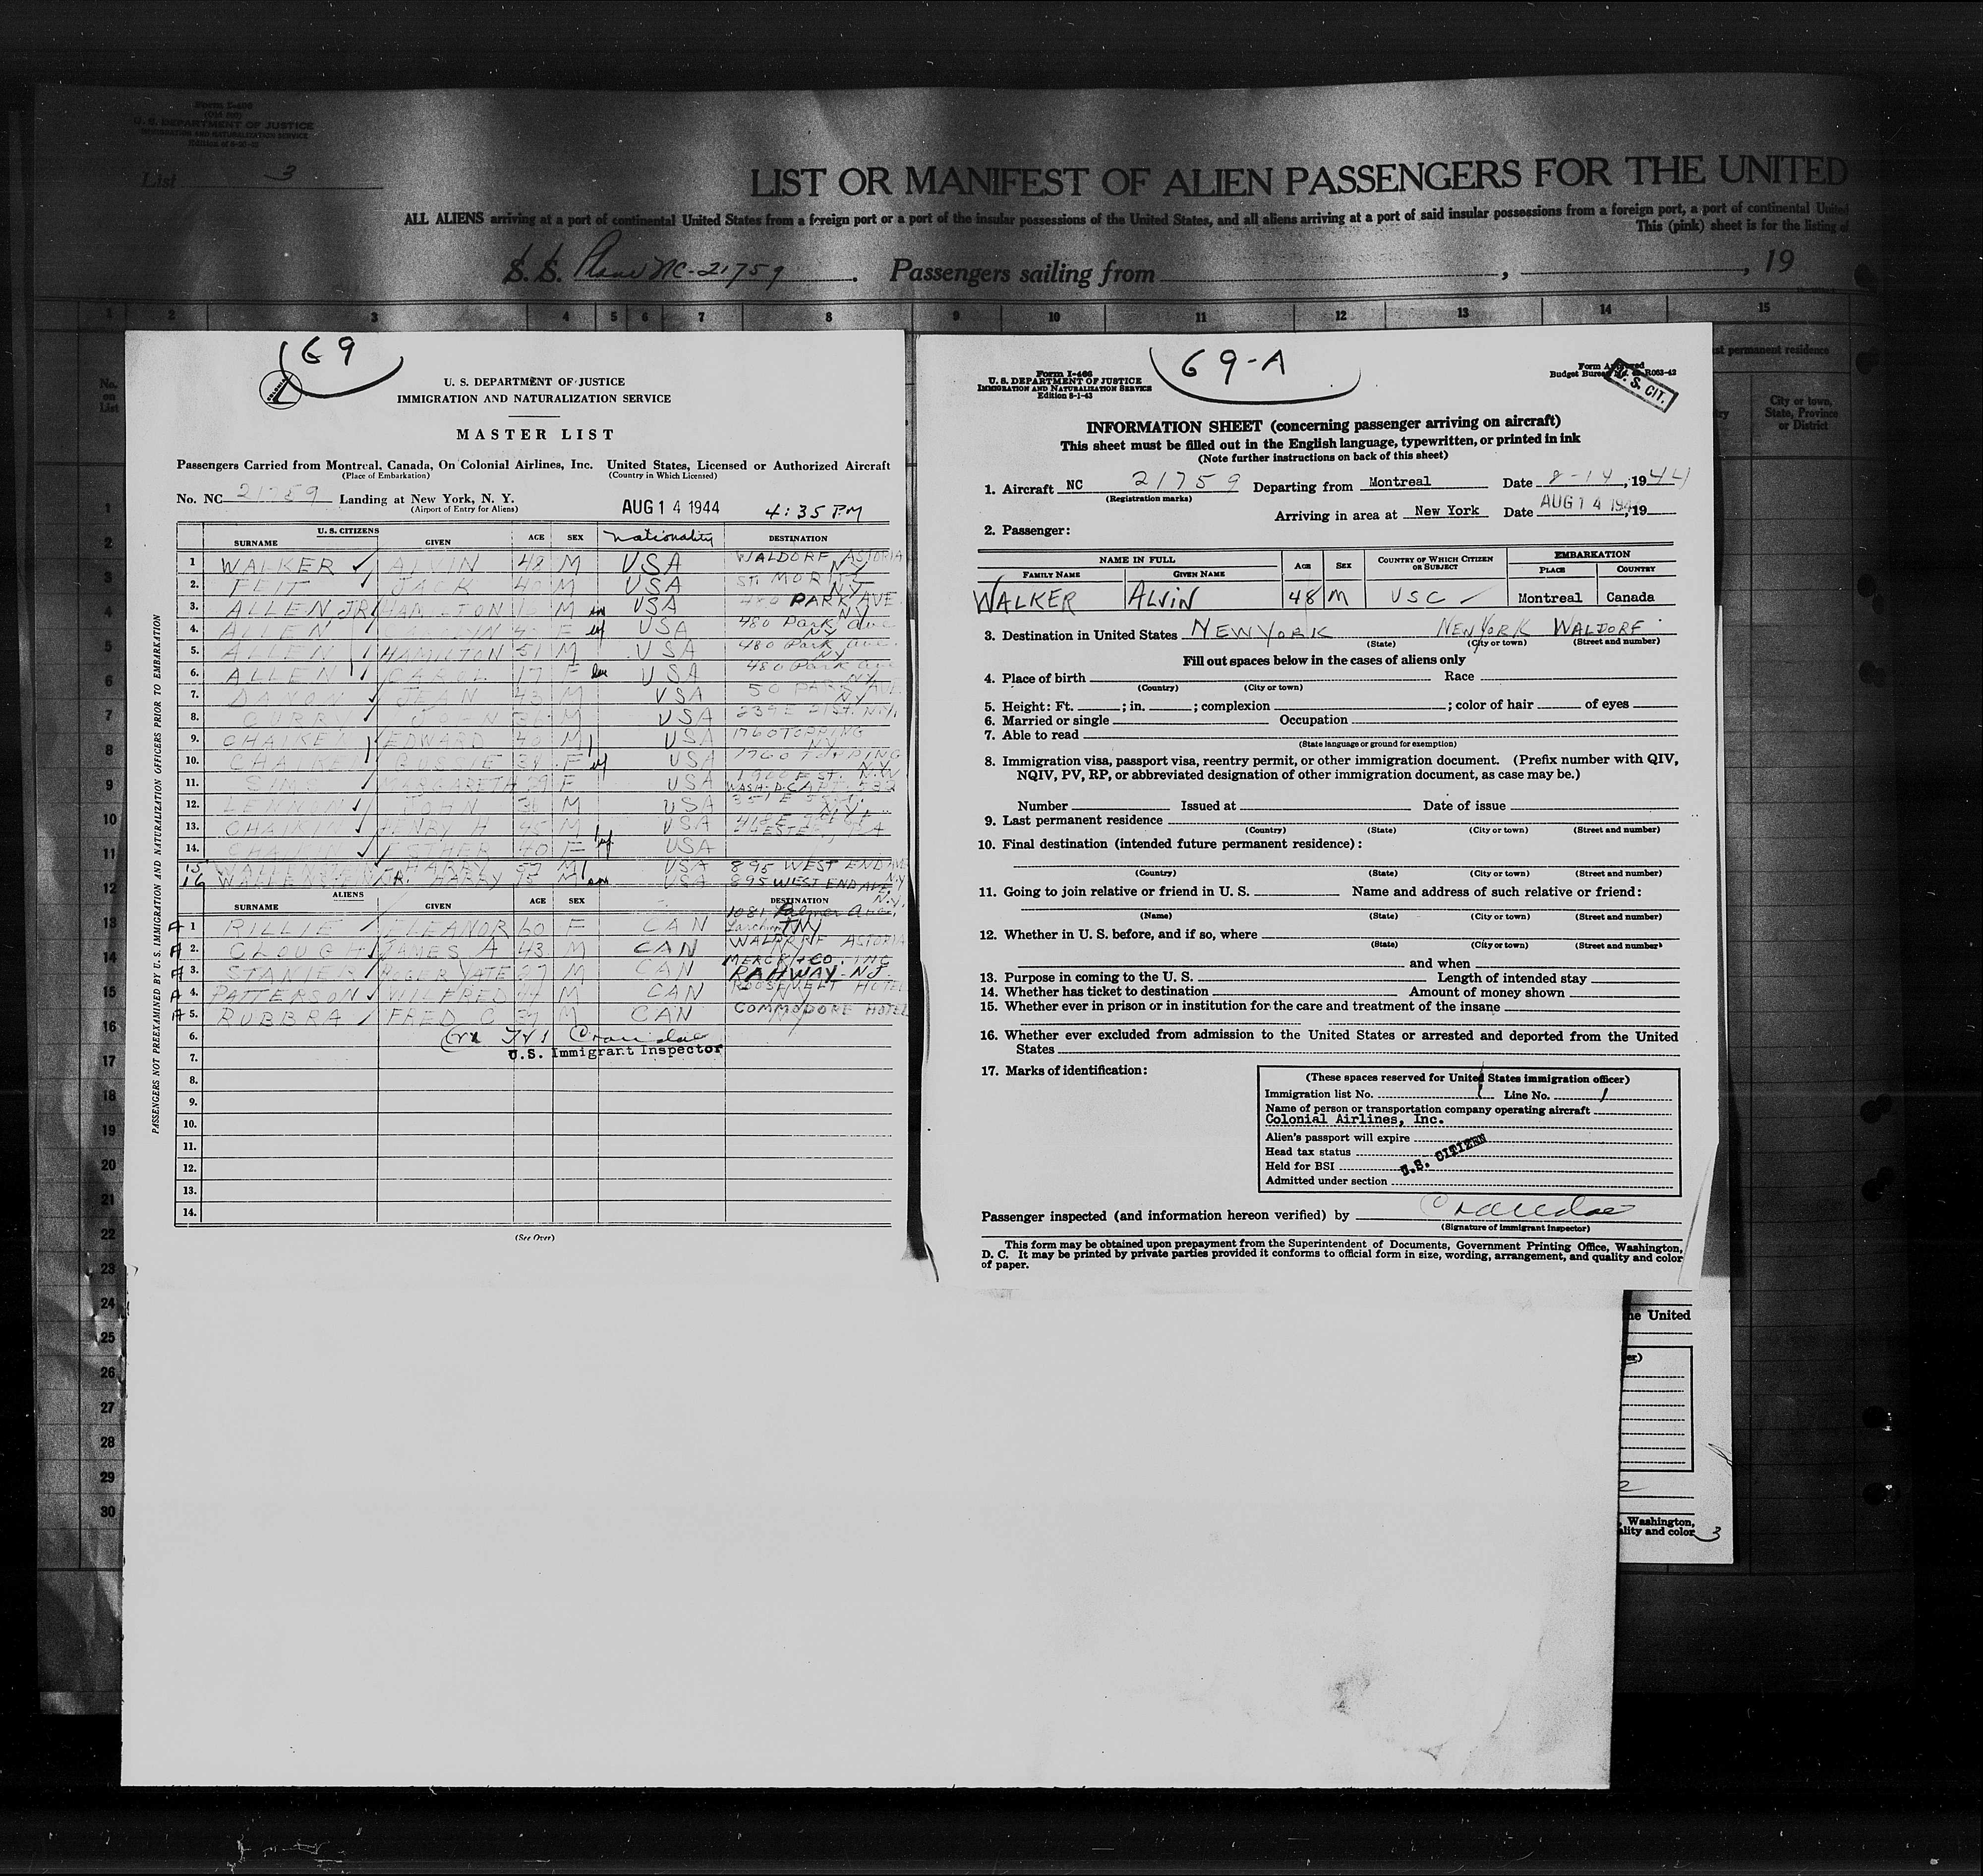 Form I-466
(Old 500)
U. S. DEPARTMENT OF JUSTICE
IMMIGRATION AND NATURALIZATION SERVICE
List 3
LIST OR MANIFEST OF ALIEN PASSENGERS FOR THE UNITED
ALL ALIENS arriving at a port of continental United States from a foreign port or a port of the insular possessions of the United States, and all aliens arriving at a port of said insular possessions from a foreign port, a port of continental United
This (pink) sheet is for the listing of
S. S. Plane NC-21759. Passengers sailing from , , 19
1 2 3 4 5 6 7 8 9 10 11 12 13 14 15
No. on List
permanent residence
City or town, State, Province or District
69
COLONIAL
U. S. DEPARTMENT OF JUSTICE
IMMIGRATION AND NATURALIZATION SERVICE
MASTER LIST
Passengers Carried from Montreal, Canada, On Colonial Airlines, Inc. United States, Licensed or Authorized Aircraft
(Place of Embarkation) (Country in Which Licensed)
No. NC 21759 Landing at New York, N. Y. AUG 14 1944 4:35 PM
(Airport of Entry for Aliens)
U. S. CITIZENS
SURNAME GIVEN AGE SEX Nationality DESTINATION
1 WALKER ALVIN 48 M USA WALDORF ASTORIA NY
2. FEIT JACK 40 M USA ST. MORITZ NY
3. ALLEN JR HAMILTON M USA 480 PARK AVE. NY
4. ALLEN F USA 480 Park Ave NY
5. ALLEN HAMILTON 51 M USA 480 Park Ave. NY
6. ALLEN CAROL 17 F USA 480 Park Ave NY
7. JEAN 43 M USA 50 PARK AVE. NY
8. CURRY 36 M USA 239 E 21 ST. N.Y.
9. CHAIKEN EDWARD 40 M USA 1760 TOPPING NY
10. CHAIKEN GUSSIE 38 F USA 1760 TOPPING
11. SIMS MARGARETA 29 F USA WASH. D.C.
12. JOHN 36 M USA
13. CHAIKIN HENRY H 45 M USA CHESTER, PA
14. CHAIKIN ESTHER 40 F USA
15 HARRY 57 M USA 895 WEST END AVE
16 JR. HARRY 15 M USA 895 WEST END AVE, N.Y.
ALIENS
SURNAME GIVEN AGE SEX DESTINATION
A 1 RILLIE ELEANOR 60 F CAN 1081 Palmer Ave. Larchmont NY
A 2. CLOUGH JAMES A 43 M CAN WALDORF ASTORIA
A 3. STANIER ROGER YATE 27 M CAN MERCK & CO. INC RAHWAY NJ.
A 4. PATTERSON WILFRED 44 M CAN ROOSEVELT HOTEL
A 5. RUBBRA FRED C 39 M CAN COMMODORE HOTEL NY
6.
U.S. Immigrant Inspector
7.
8.
9.
10.
11.
12.
13.
14.
(See Over)
PASSENGERS NOT PREEXAMINED BY U. S. IMMIGRATION AND NATURALIZATION OFFICERS PRIOR TO EMBARKATION
1
2
3
4
5
6
7
8
9
10
11
12
13
14
15
16
17
18
19
20
21
22
23
24
25
26
27
28
29
30
69-A
Form I-466
U. S. DEPARTMENT OF JUSTICE
IMMIGRATION AND NATURALIZATION SERVICE
Edition 8-1-43
Form Approved
Budget Bureau No. 43-R063-42
U. S. CIT.
INFORMATION SHEET (concerning passenger arriving on aircraft)
This sheet must be filled out in the English language, typewritten, or printed in ink
(Note further instructions on back of this sheet)
1. Aircraft NC 21759 Departing from Montreal Date 8-14, 1944
(Registration marks)
Arriving in area at New York Date AUG 14 1944, 19
2. Passenger:
NAME IN FULL AGE SEX COUNTRY OF WHICH CITIZEN OR SUBJECT EMBARKATION
FAMILY NAME GIVEN NAME PLACE COUNTRY
WALKER ALVIN 48 M USC Montreal Canada
3. Destination in United States NEW YORK NEW YORK WALDORF
(State) (City or town) (Street and number)
Fill out spaces below in the cases of aliens only
4. Place of birth Race
(Country) (City or town)
5. Height: Ft. ; in. ; complexion ; color of hair of eyes
6. Married or single Occupation
7. Able to read
(State language or ground for exemption)
8. Immigration visa, passport visa, reentry permit, or other immigration document. (Prefix number with QIV,
NQIV, PV, RP, or abbreviated designation of other immigration document, as case may be.)
Number Issued at Date of issue
9. Last permanent residence
(Country) (State) (City or town) (Street and number)
10. Final destination (intended future permanent residence):
(Country) (State) (City or town) (Street and number)
11. Going to join relative or friend in U. S. Name and address of such relative or friend:
(Name) (State) (City or town) (Street and number)
12. Whether in U. S. before, and if so, where
(State) (City or town) (Street and number)
and when
13. Purpose in coming to the U. S. Length of intended stay
14. Whether has ticket to destination Amount of money shown
15. Whether ever in prison or in institution for the care and treatment of the insane
16. Whether ever excluded from admission to the United States or arrested and deported from the United
States
17. Marks of identification:
(These spaces reserved for United States immigration officer)
Immigration list No. 1 Line No. 1
Name of person or transportation company operating aircraft
Colonial Airlines, Inc.
Alien's passport will expire
Head tax status
Held for BSI
Admitted under section
U.S. CITIZEN
Passenger inspected (and information hereon verified) by
(Signature of immigrant inspector)
This form may be obtained upon prepayment from the Superintendent of Documents, Government Printing Office, Washington,
D. C. It may be printed by private parties provided it conforms to official form in size, wording, arrangement, and quality and color
of paper.
he United
er)
, Washington,
ality and color
3